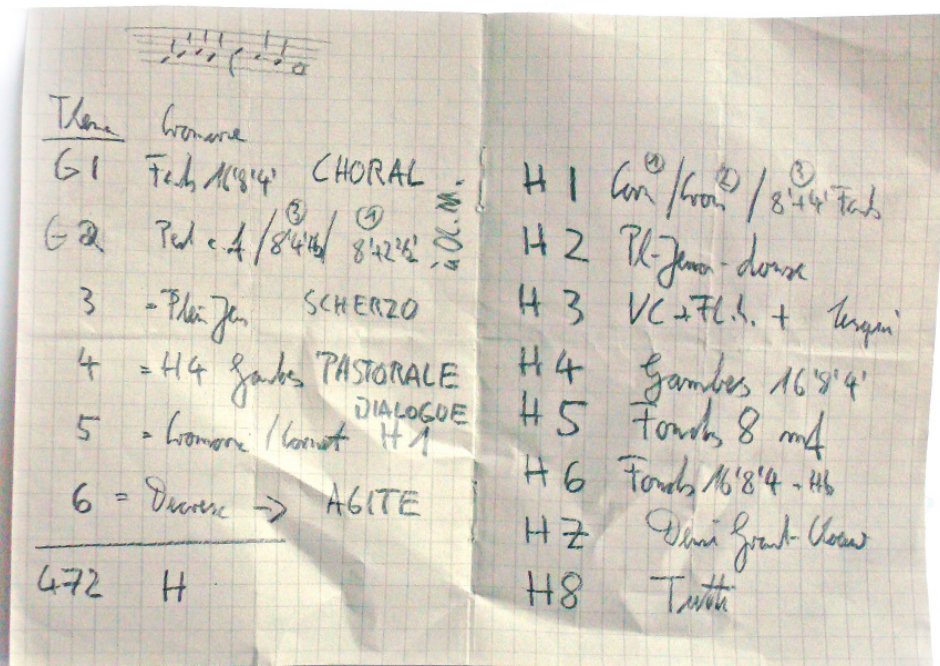 Thema Cromorne
G1 Fonds 16'8'4' CHORAL
G2 Ped c.f / ③ 8'4'Hb / ① 8'+2⅔'
3 = Plein Jeu SCHERZO
4 = H4 Gambes PASTORALE
DIALOGUE
5 = Cromorne / Cornet H1
6 = Decresc → AGITE
472 H
H1 Corn ① / Crom ② / ③ 8'+4' Fonds
H2 Pl-Jeu-doux
H3 VC + Fl.h. +
H4 Gambes 16'8'4'
H5 Fonds 8 mf
H6 Fonds 16'8'4 - Hb
H7 Demi Grand-Choeur
H8 Tutti